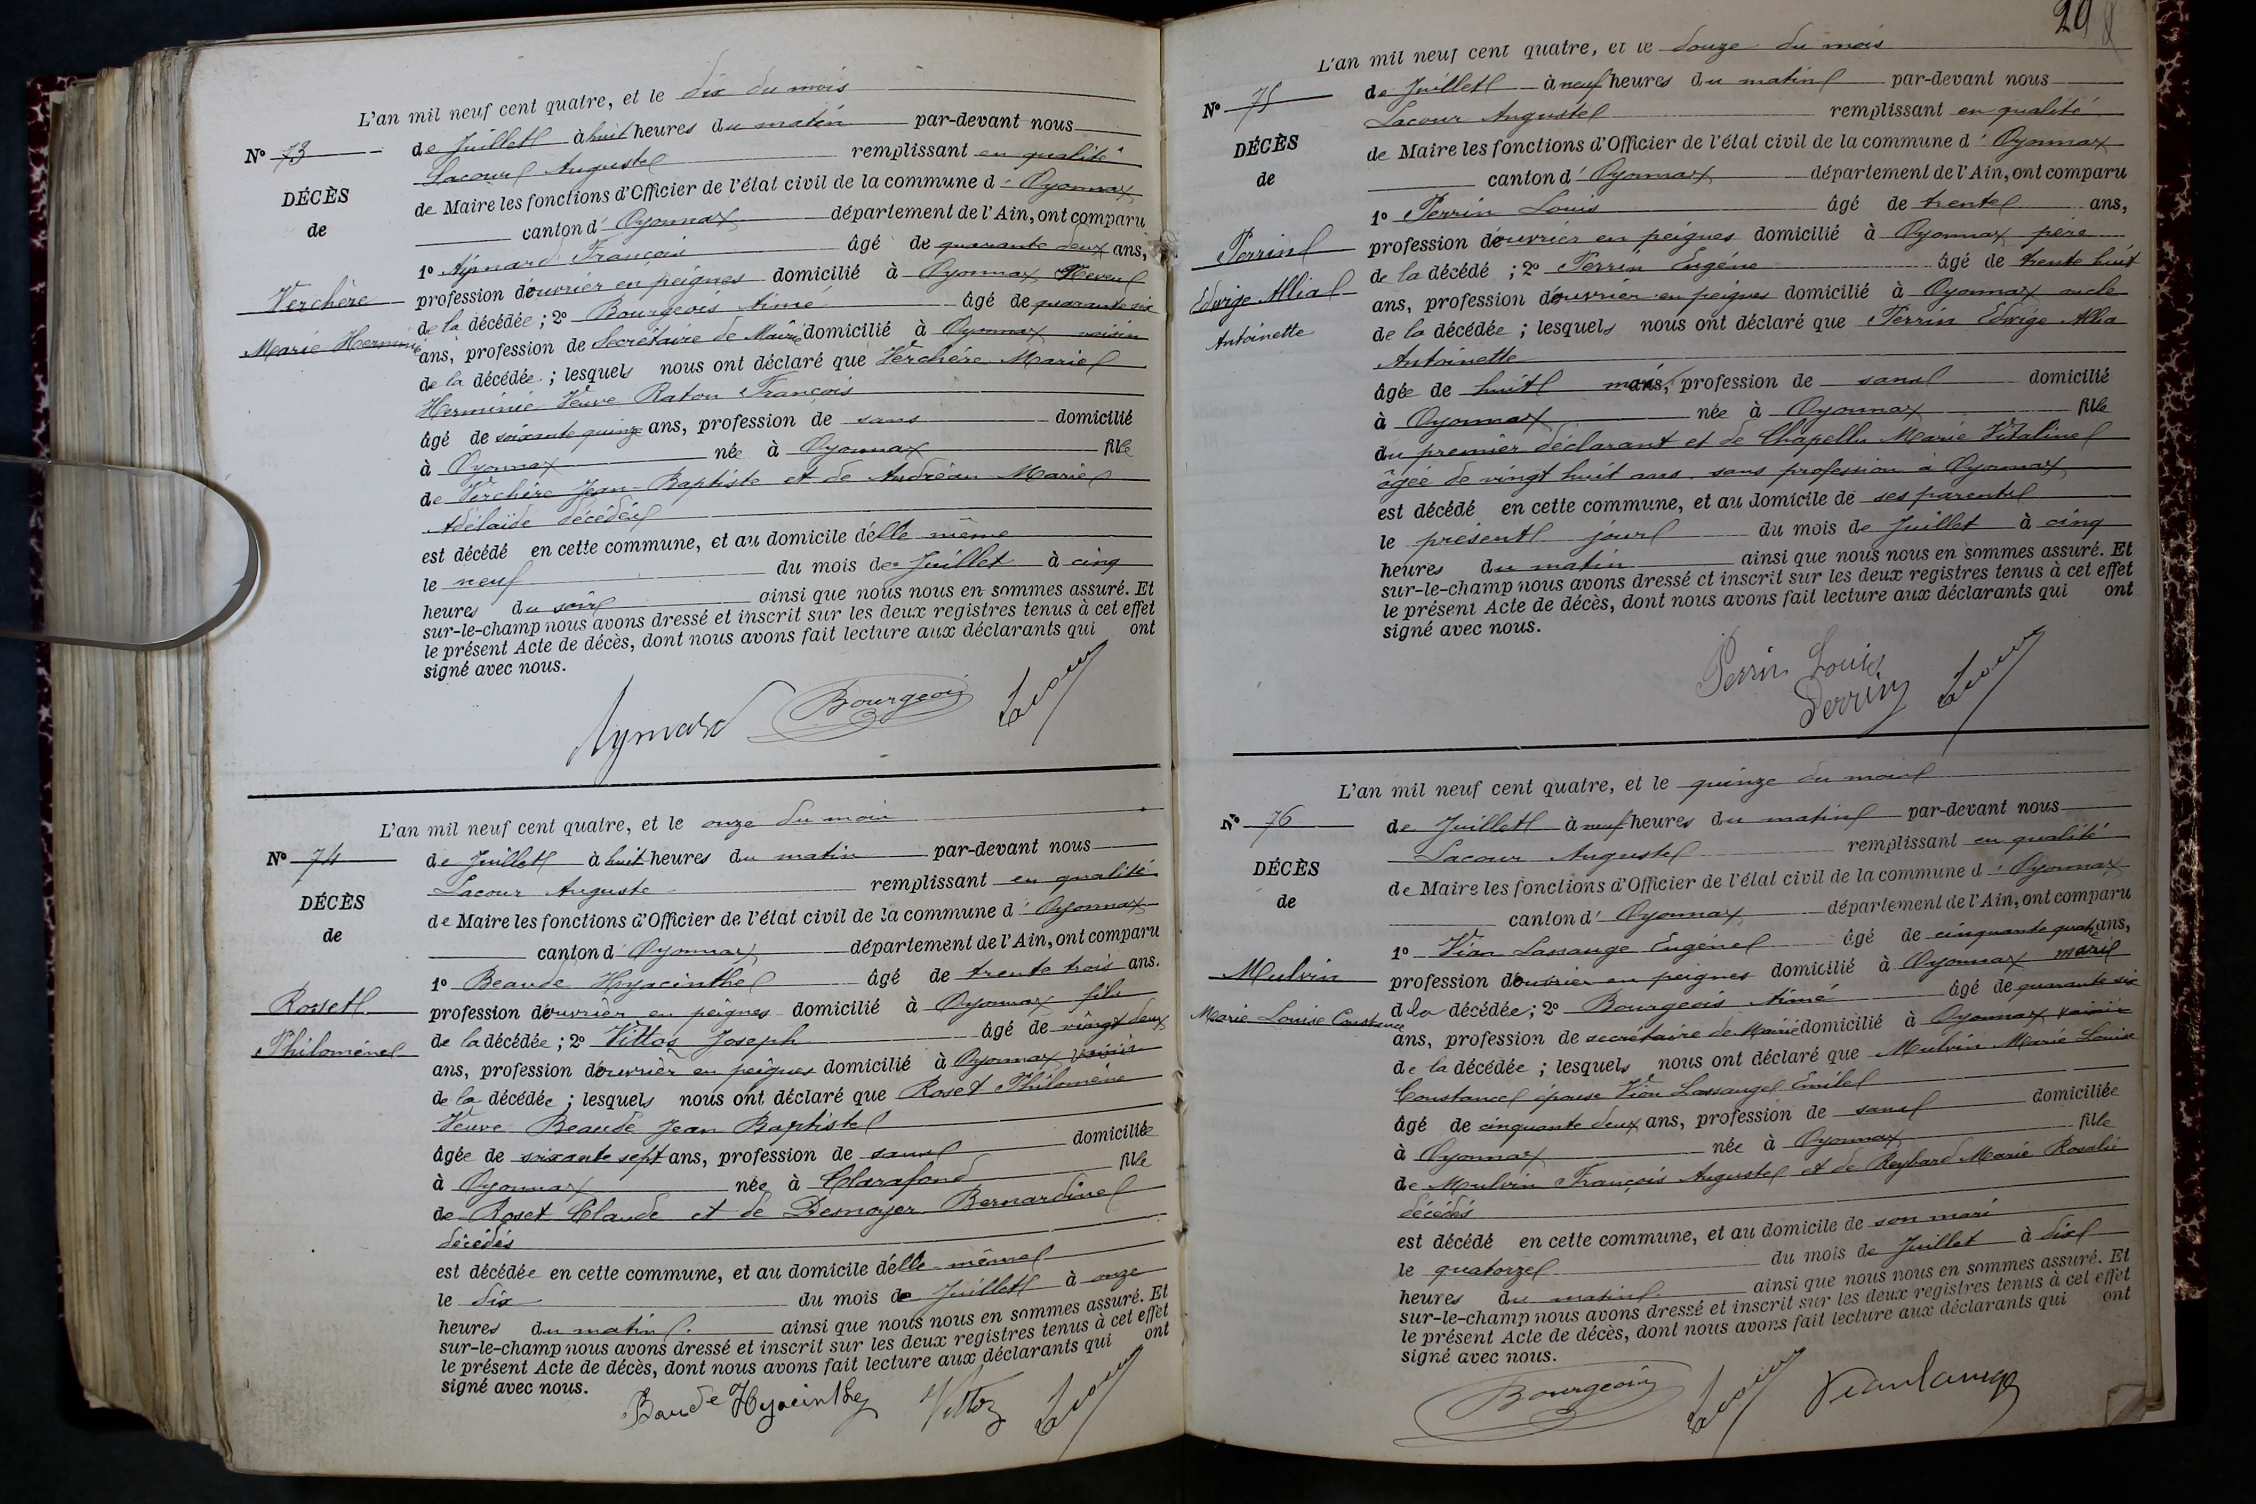 L'an mil neuf cent quatre, et le dix du mois
N° 73
de Juillet à huit heures du matin par-devant nous
Lacour Auguste remplissant en qualité
DÉCÈS
de Maire les fonctions d'Officier de l'état civil de la commune d' Oyonnax
de
canton d' Oyonnax département de l'Ain, ont comparu
1° Aymard François âgé de quarante deux ans,
Verchère
profession d'ouvrier en peignes domicilié à Oyonnax Neveu
de la décédée ; 2° Bourgeois Aimé âgé de quarante six
Marie Herminie
ans, profession de Secrétaire de Mairie domicilié à Oyonnax voisin
de la décédée ; lesquels nous ont déclaré que Verchère Marie
Herminie Veuve Raton François
âgé de soixante quinze ans, profession de sans domicilié
à Oyonnax née à Oyonnax fille
de Verchère Jean-Baptiste et de Andréan Marie
Adélaïde décédés
est décédé en cette commune, et au domicile d'elle même
le neuf du mois de Juillet à cinq
heures du soir ainsi que nous nous en sommes assuré. Et
sur-le-champ nous avons dressé et inscrit sur les deux registres tenus à cet effet
le présent Acte de décès, dont nous avons fait lecture aux déclarants qui ont
signé avec nous.
Aymard Bourgeois Lacour
L'an mil neuf cent quatre, et le onze du mois
N° 74
de Juillet à huit heures du matin par-devant nous
Lacour Auguste remplissant en qualité
DÉCÈS
de Maire les fonctions d'Officier de l'état civil de la commune d' Oyonnax
de
canton d' Oyonnax département de l'Ain, ont comparu
1° Beaude Hyacinthe âgé de trente trois ans.
Roset
profession d'ouvrier en peignes domicilié à Oyonnax fils
de la décédée ; 2° Vittoz Joseph âgé de vingt deux
Philomène
ans, profession d'ouvrier en peignes domicilié à Oyonnax voisin
de la décédée ; lesquels nous ont déclaré que Roset Philomène
Veuve Beaude Jean Baptiste
âgée de soixante sept ans, profession de sans domiciliée
à Oyonnax née à Clarafond fille
de Roset Claude et de Desnoyer Bernardine
décédés
est décédée en cette commune, et au domicile d'elle-même
le dix du mois de Juillet à onze
heures du matin. ainsi que nous nous en sommes assuré. Et
sur-le-champ nous avons dressé et inscrit sur les deux registres tenus à cet effet
le présent Acte de décès, dont nous avons fait lecture aux déclarants qui ont
signé avec nous.
Baude Hyacinthe Vittoz Lacour
29
L'an mil neuf cent quatre, et le douze du mois
N° 75
de Juillet à neuf heures du matin par-devant nous
Lacour Auguste remplissant en qualité
DÉCÈS
de Maire les fonctions d'Officier de l'état civil de la commune d' Oyonnax
de
canton d' Oyonnax département de l'Ain, ont comparu
1° Perrin Louis âgé de trente ans,
Perrin
profession d'ouvrier en peignes domicilié à Oyonnax père
de la décédé ; 2° Perrin Eugène âgé de trente huit
Edwige Allia
ans, profession d'ouvrier en peignes domicilié à Oyonnax oncle
Antoinette
de la décédée ; lesquels nous ont déclaré que Perrin Edwige Allia
Antoinette
âgée de huit mois, profession de sans domicilié
à Oyonnax née à Oyonnax fille
du premier déclarant et de Chapellu Marie Vitaline
âgée de vingt huit ans sans profession à Oyonnax
est décédé en cette commune, et au domicile de ses parents
le présent jour du mois de Juillet à cinq
heures du matin ainsi que nous nous en sommes assuré. Et
sur-le-champ nous avons dressé et inscrit sur les deux registres tenus à cet effet
le présent Acte de décès, dont nous avons fait lecture aux déclarants qui ont
signé avec nous.
Perrin Louis
Perrin Lacour
L'an mil neuf cent quatre, et le quinze du mois
N° 76
de Juillet à neuf heures du matin par-devant nous
Lacour Auguste remplissant en qualité
DÉCÈS
de Maire les fonctions d'Officier de l'état civil de la commune d' Oyonnax
de
canton d' Oyonnax département de l'Ain, ont comparu
1° Vian Lassange Eugène âgé de cinquante quatre ans,
Mulvin
profession d'ouvrier en peignes domicilié à Oyonnax mari
d la décédée ; 2° Bourgeois Aimé âgé de quarante six
Marie Louise Constance
ans, profession de secrétaire de Mairie domicilié à Oyonnax voisin
de la décédée ; lesquels nous ont déclaré que Mulvin Marie Louise
Constance épouse Vian Lassange Emile
âgé de cinquante deux ans, profession de sans domiciliée
à Oyonnax née à Oyonnax fille
de Mulvin François Auguste et de Reybard Marie Rosalie
décédés
est décédé en cette commune, et au domicile de son mari
le quatorze du mois de Juillet à dix
heures du matin ainsi que nous nous en sommes assuré. Et
sur-le-champ nous avons dressé et inscrit sur les deux registres tenus à cet effet
le présent Acte de décès, dont nous avons fait lecture aux déclarants qui ont
signé avec nous.
Bourgeois Lacour